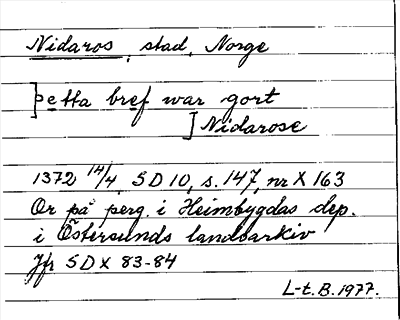 Nidaros, stad, Norge
]þetta bref war gort
] Nidarose
1372 14/4, SD 10, s. 147, nr X 163
Or på perg. i Heimbygdas dep.
i Östersunds landsarkiv
Jfr SD X 83-84
L-t. B. 1977.